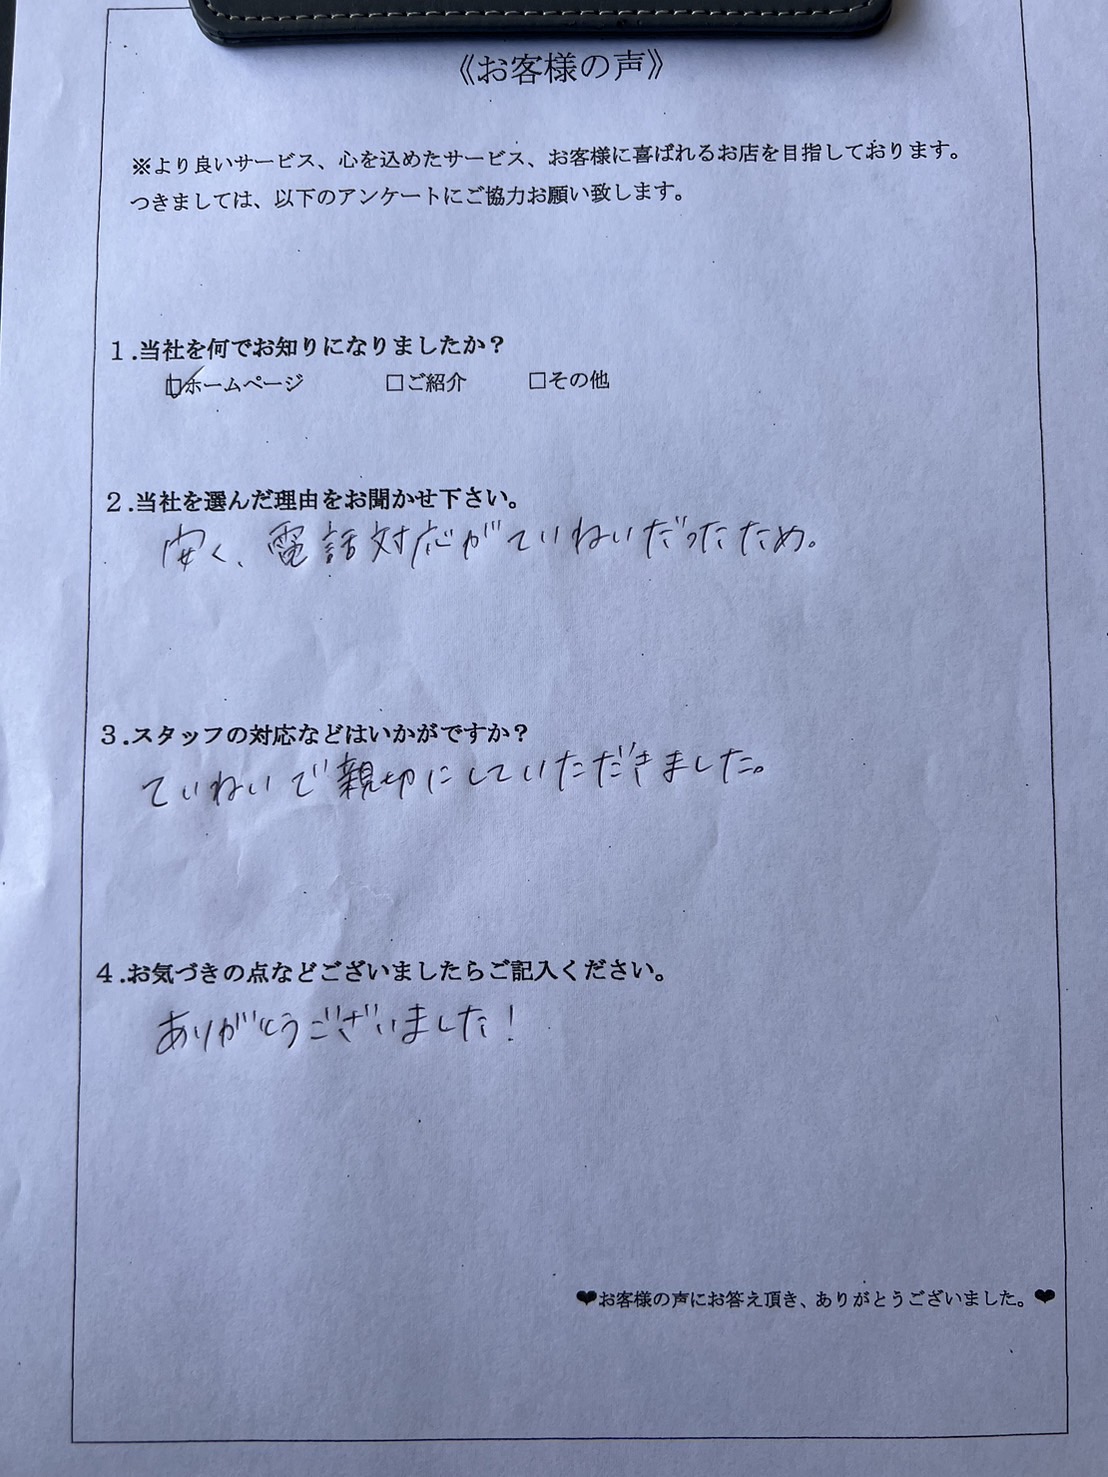 《お客様の声》
※より良いサービス、心を込めたサービス、お客様に喜ばれるお店を目指しております。
つきましては、以下のアンケートにご協力お願い致します。
１.当社を何でお知りになりましたか？
☑ホームページ　□ご紹介　□その他
２.当社を選んだ理由をお聞かせ下さい。
安く、電話対応がていねいだったため。
３.スタッフの対応などはいかがですか？
ていねいで親切にしていただきました。
４.お気づきの点などございましたらご記入ください。
ありがとうございました！
❤お客様の声にお答え頂き、ありがとうございました。❤